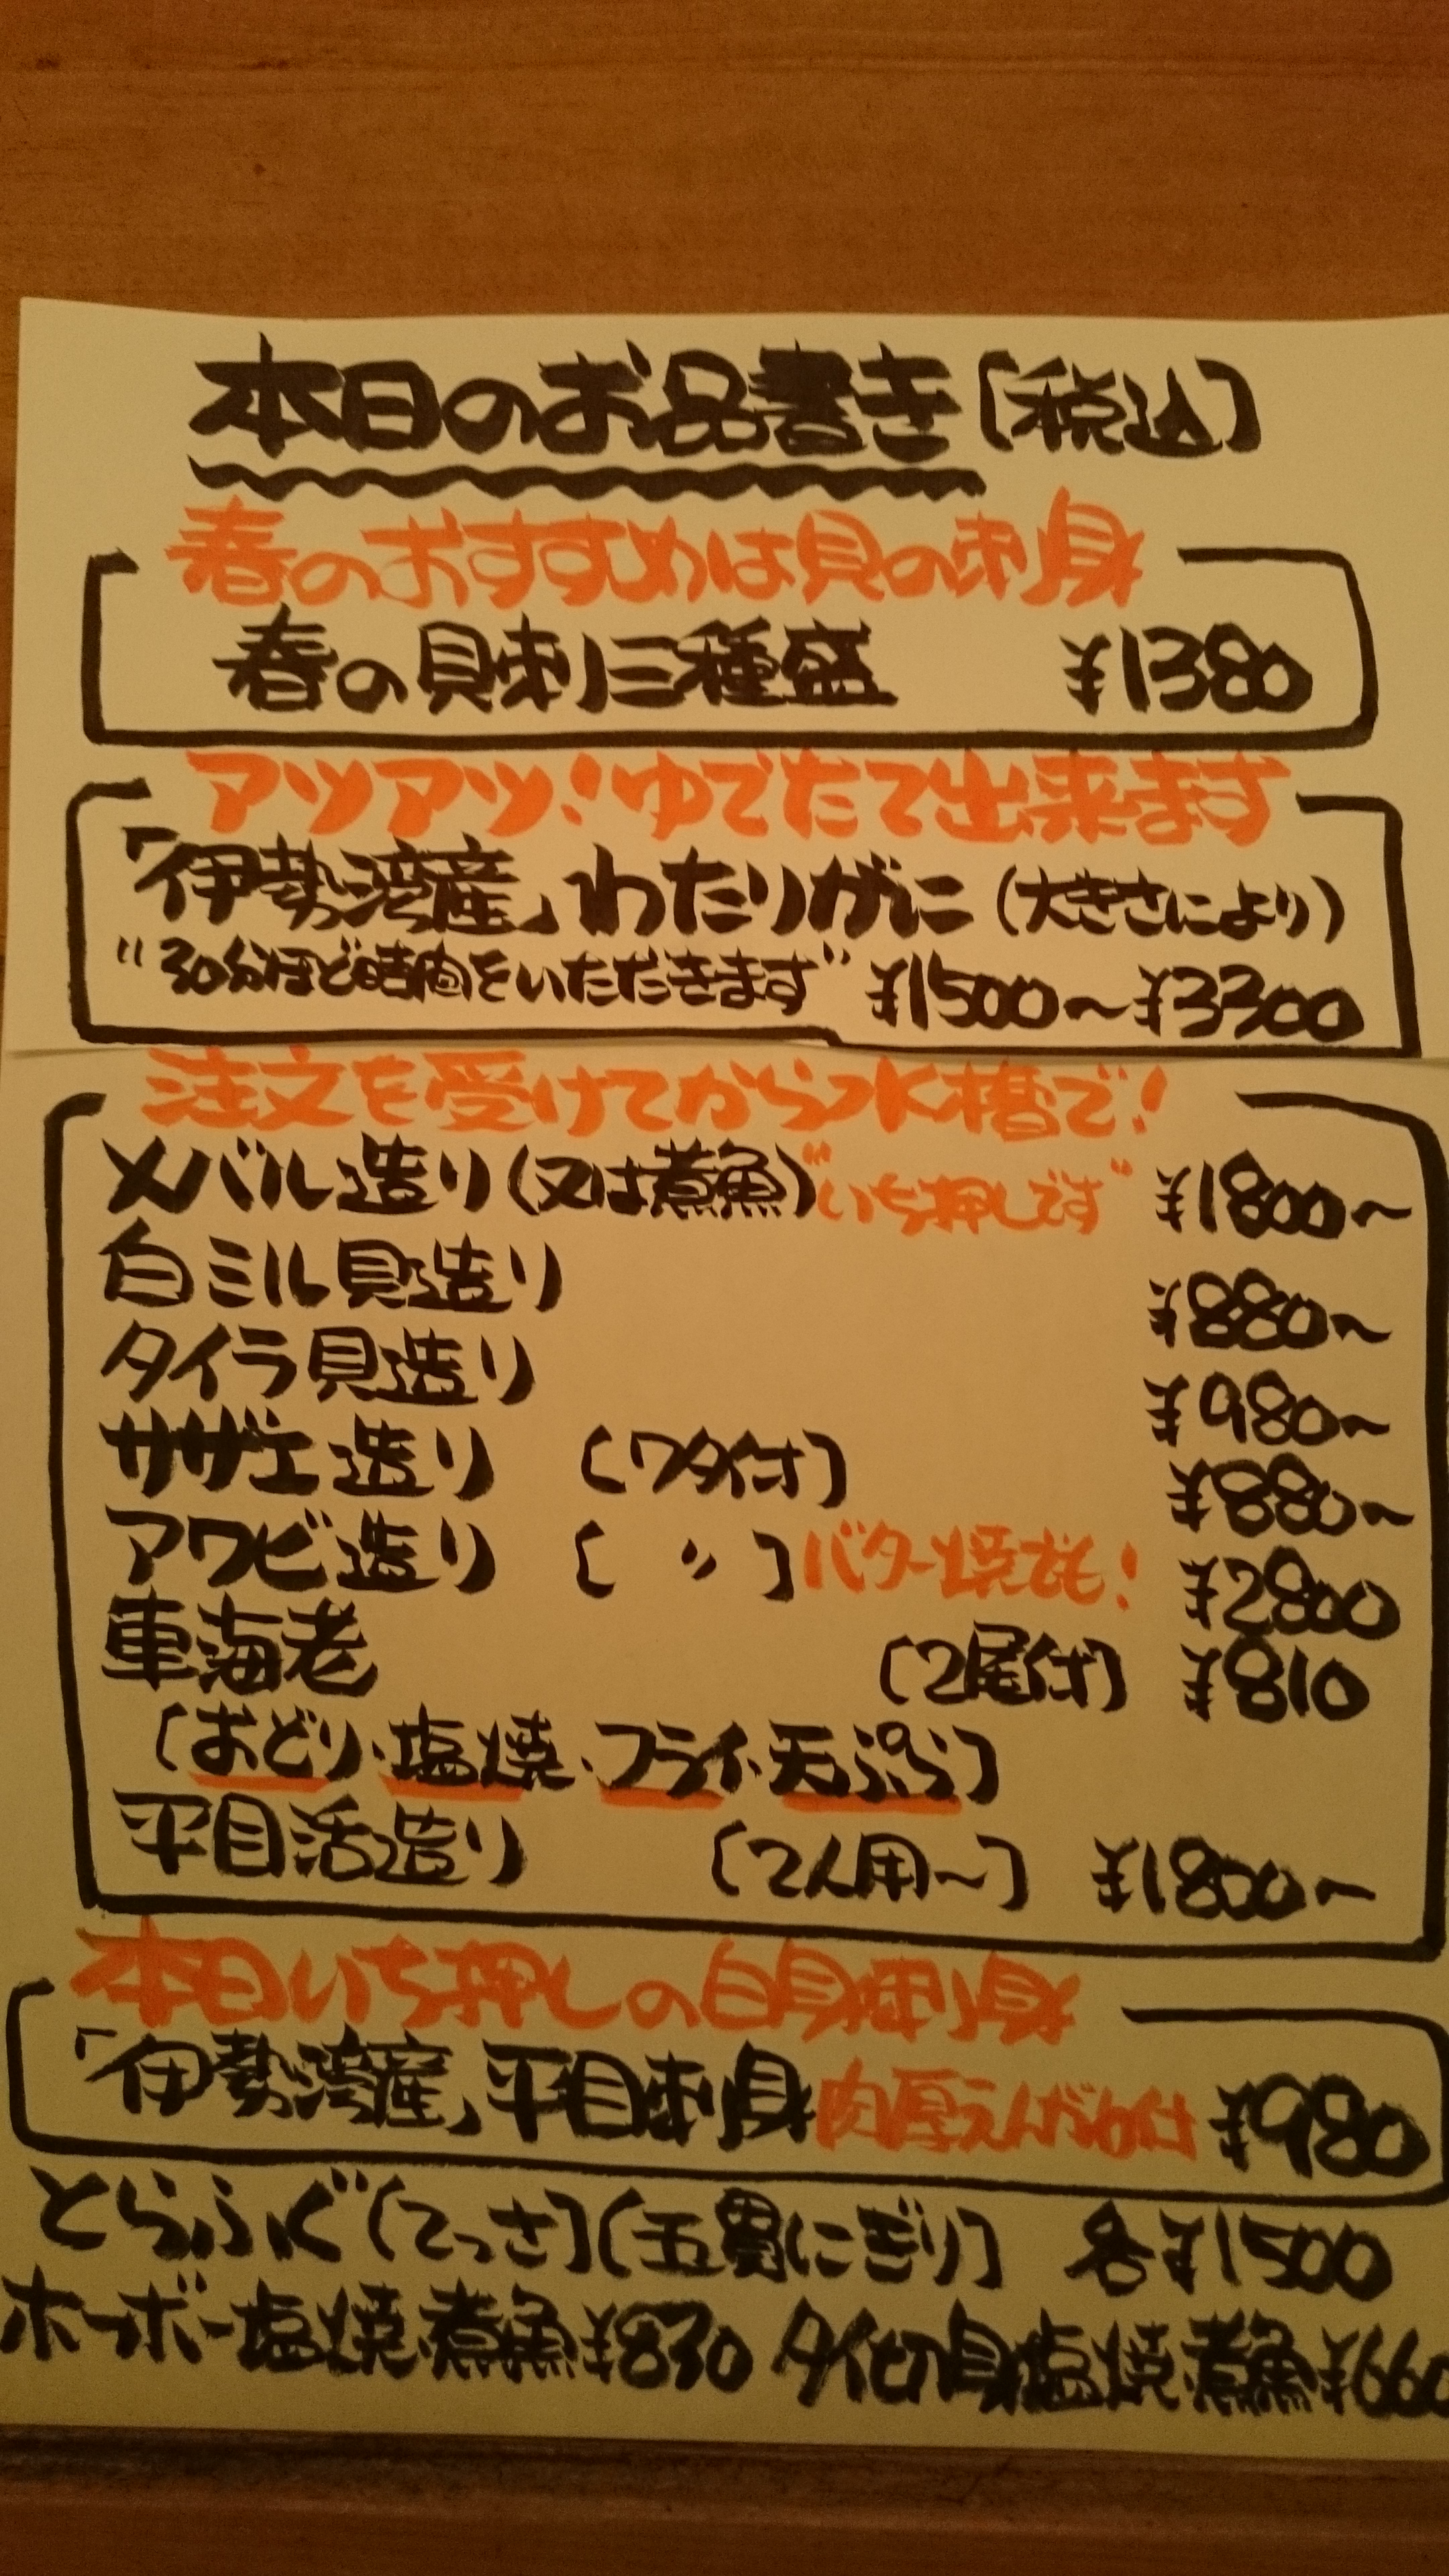 本日のお品書き〔税込〕
春のおすすめは貝の刺身
春の貝刺三種盛 ¥1380
アツアツ!ゆでたて出来ます
「伊勢湾産」わたりがに(大きさにより)
"30分ほど時間をいただきます" ¥1500〜¥3300
注文を受けてから水槽で!
メバル造り(又は煮魚)"いち押しです" ¥1800〜
白ミル貝造り ¥880〜
タイラ貝造り ¥980〜
サザエ造り〔ワタ付〕 ¥880〜
アワビ造り〔〃〕バター焼でも! ¥2800
車海老〔2尾付〕 ¥810
〔おどり・塩焼・フライ・天ぷら〕
平目活造り〔2人用〜〕 ¥1800〜
本日いち押しの白身刺身
「伊勢湾産」平目刺身 肉厚えんがわ付 ¥980
とらふぐ〔てっさ〕〔五貫にぎり〕 各¥1500
ホーボー塩焼・煮魚¥830 タイ切身塩焼・煮魚¥660